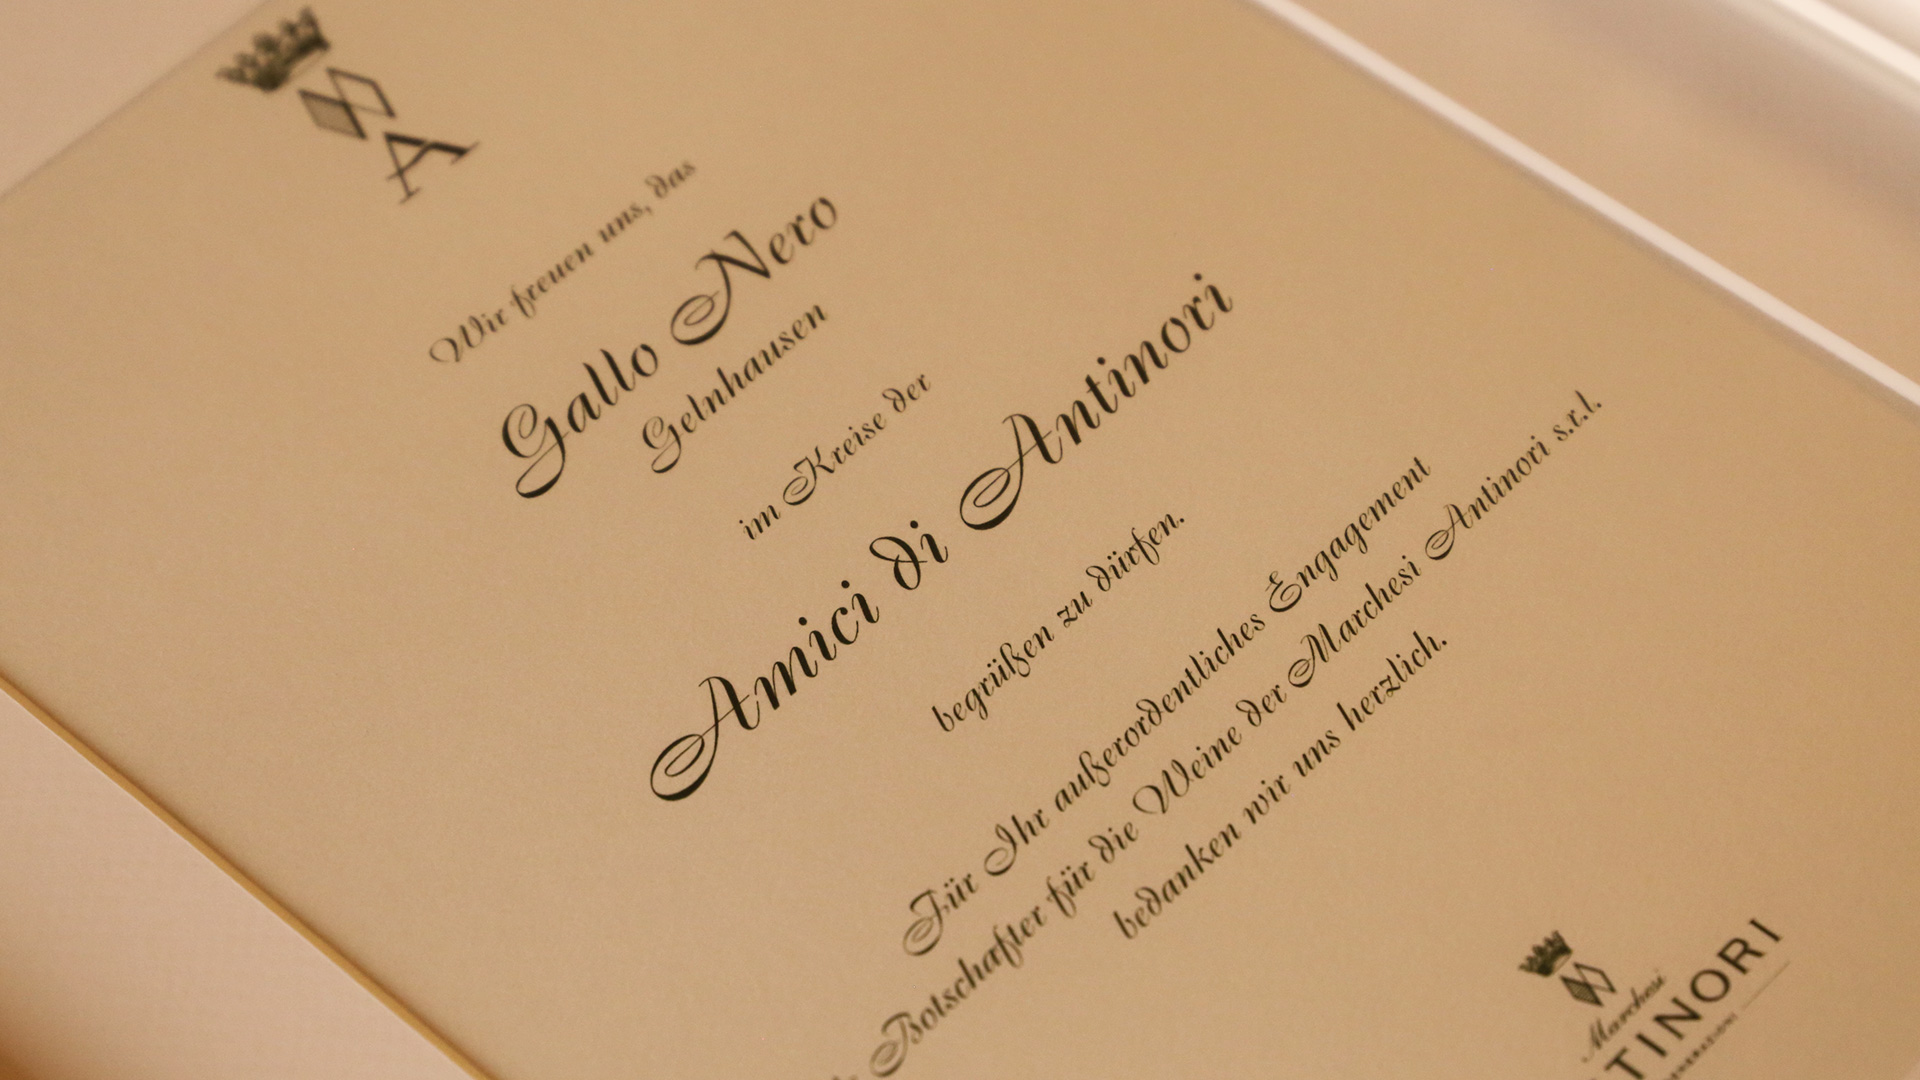 A
Wir freuen uns, das
Gallo Nero
Gelnhausen
im Kreise der
Amici di Antinori
begrüßen zu dürfen.
Für Ihr außerordentliches Engagement
Botschafter für die Weine der Marchesi Antinori s.r.l.
bedanken wir uns herzlich.
Marchesi
TINORI